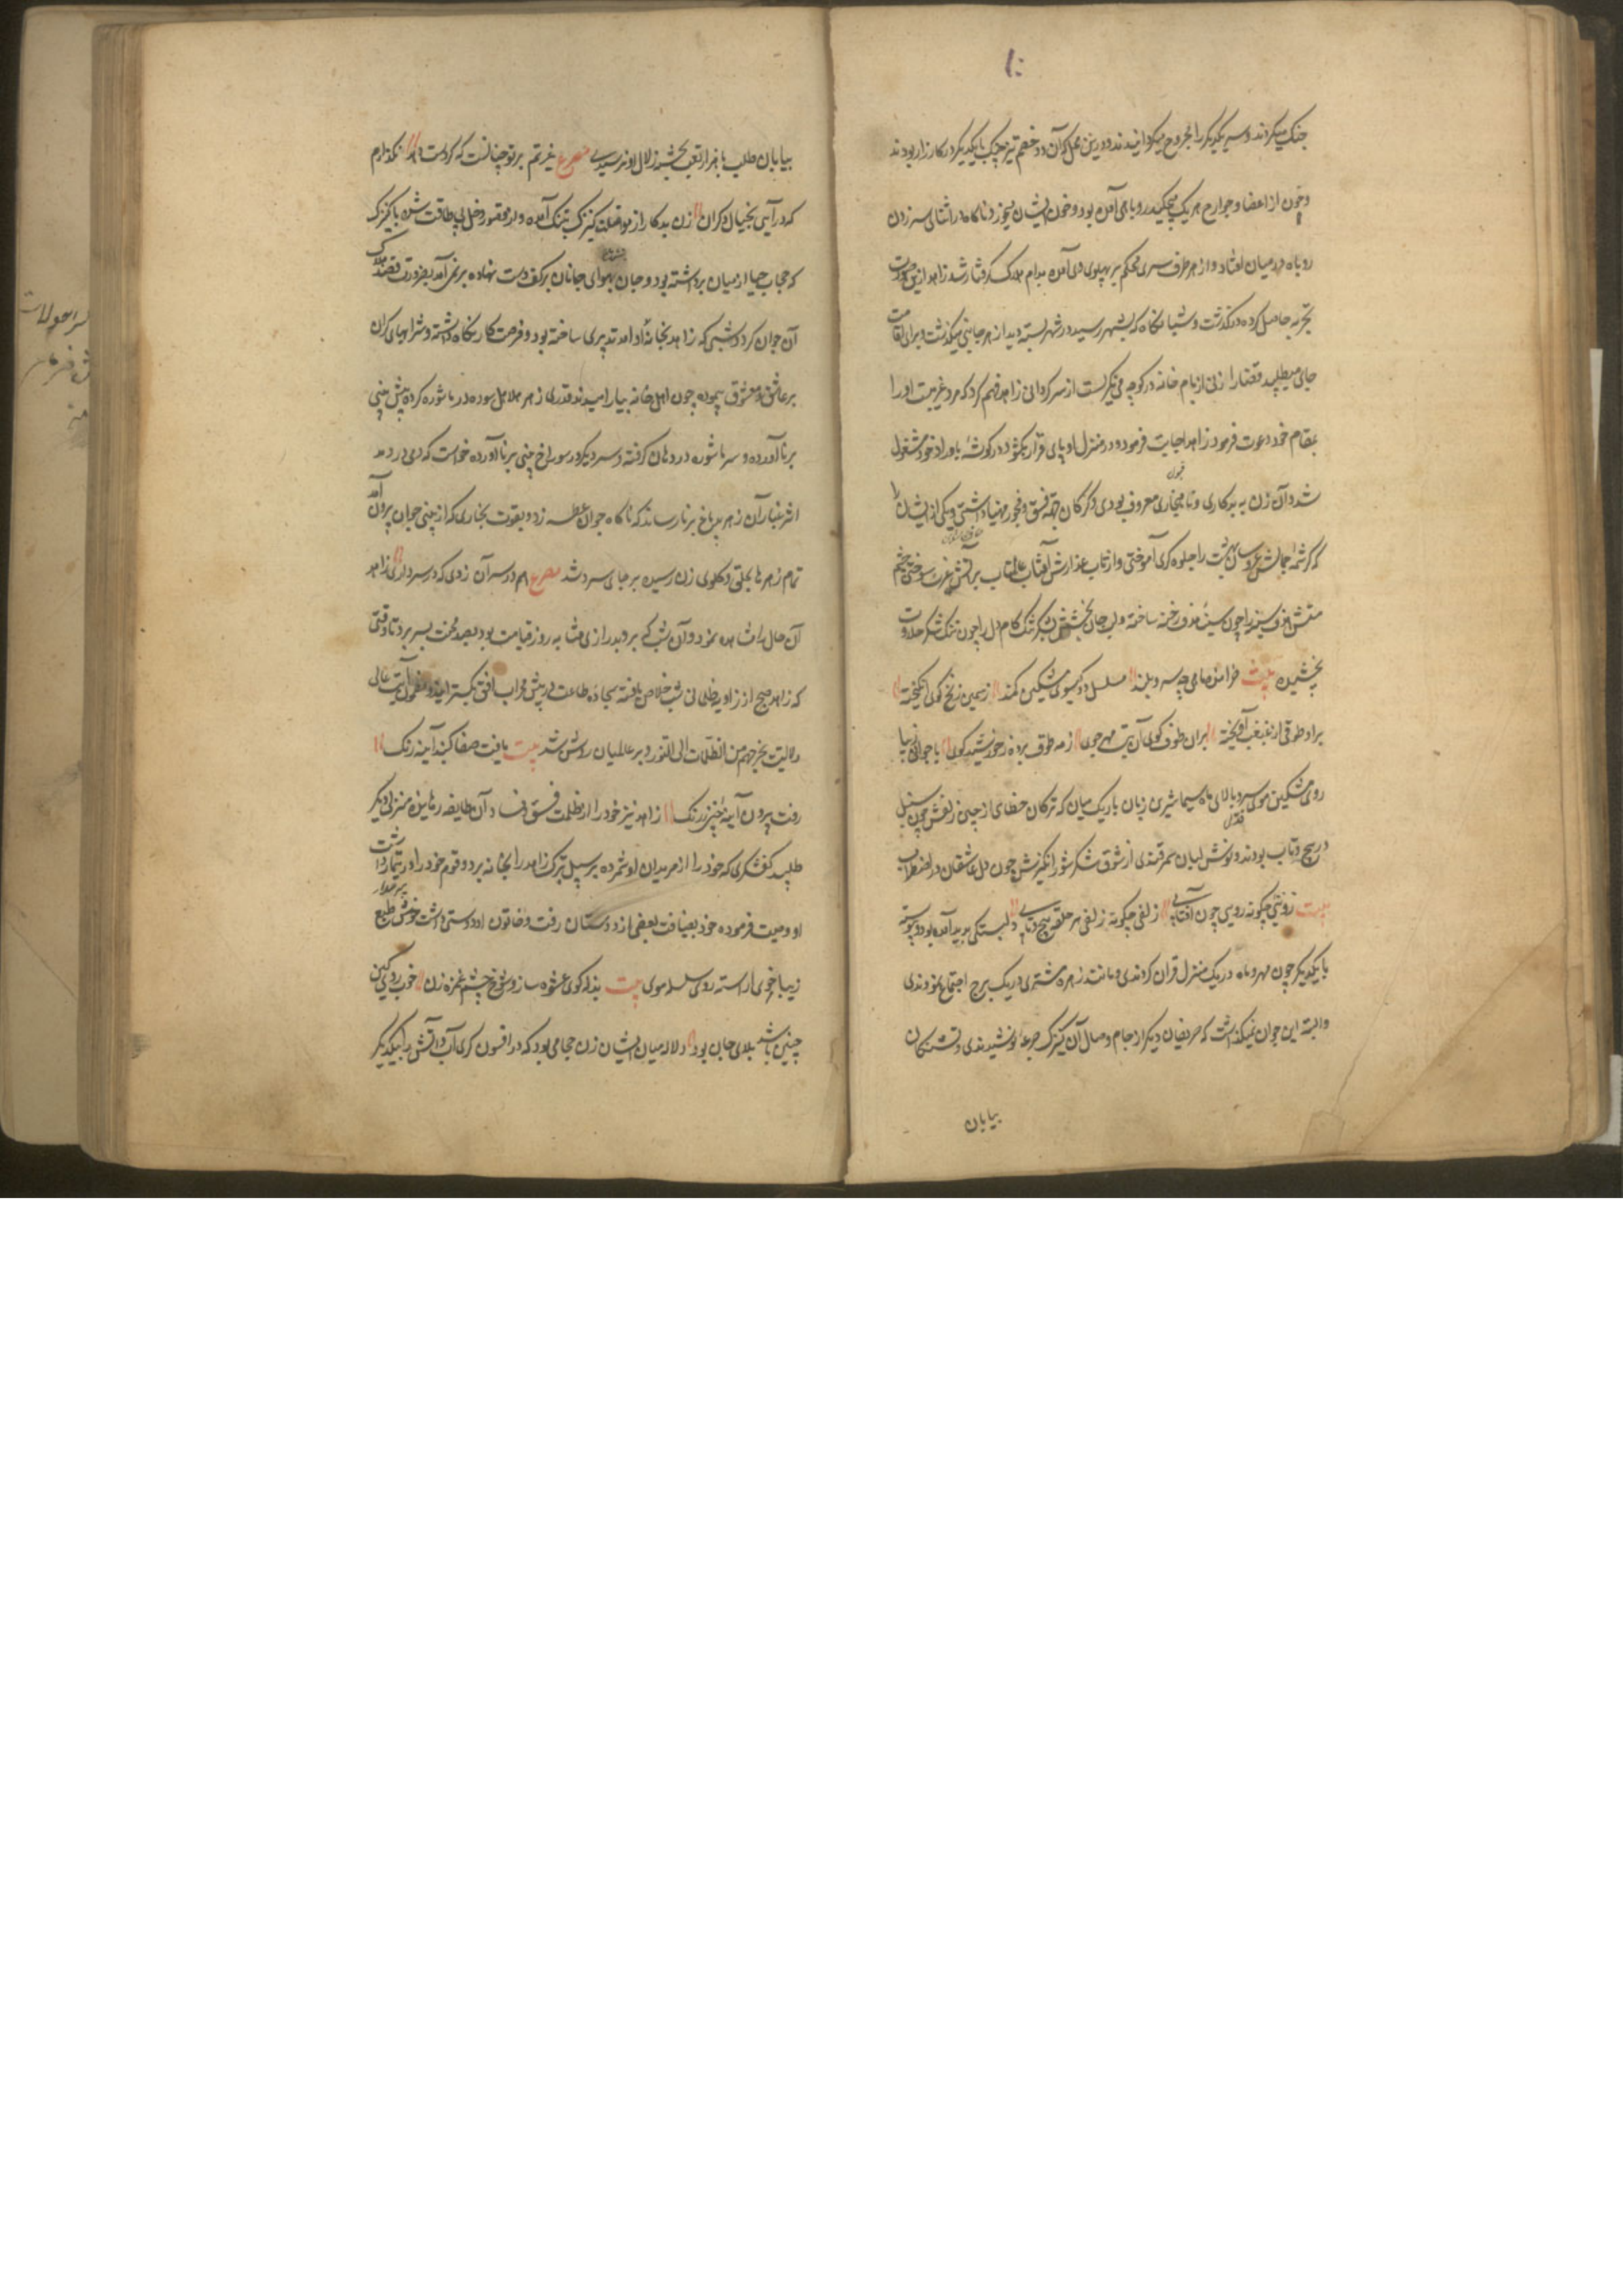 جنک میکردند و سر یکدیکر را مجروح میکردانیدند و درین محل که آن دو خصم تیز چنک با یکدیکر در کارزار بودند
و خون از اعضا و جوارح هر یک میچکید روباهی آمده بود و خون ایشان میخورد ناکاه در اثنای سر زدن
روباه در میان افتاد و از هر طرف سری محکم بر پهلوی وی آمده بدام هلاک کرفتار شد زاهد ازین صورت
تجربه حاصل کرده درکذشت و شبانکاه که بشهر رسید در شهر بسته دید از هر جانبی میکذشت و برای اقامت
جای میطلپید قضارا زنی از بام خانه در کوچه می نکریست از سرکردانی زاهد فهم کرد که مرد غریبست او را
بمقام خود دعوت فرمود زاهد اجابت فرمود و در منزل او پای افزار بکشود در کوشه باوراد خود مشغول
شد و آن زن به بدکاری و نابهنجاری معروف بودی و کنیزکان جهة فسق و فجور مهیا داشتی و یکی از ایشان را
که کرشمه جمالش عروسان بهشت را جلوه کری آموختی و از تاب عذارش آفتاب عالمتاب بر آتش غیرت سوختی چشم
مستش هدف سینه را چون سینه هدف رخنه ساخته و لب جان بخشش بشکر تنک کام دل را چون تنک شکر حلاوت
بخشیده بیت خرامنده ماهی چو سرو بلند مسلسل دو کیسوی مشکین کمند ز سیمین زنخ کوی انکیخته
برو طوقی از غبغب آویخته بران طوق کوی آن بت مهرجوی ز مه طوق برده ز خورشید کوی با جوانی زیبا
روی مشکین موی سرو بالای ماه سیما شیرین زبان باریک میان که ترکان خطای از چین زلفش چون سنبل
در پیچ و تاب بودند و نوش لبان سمرقندی از شوق شکر شورانکیزش چون دل عاشقان در اضطراب
بیت روئی چکونه رویی چون آفتابی زلفی چکونه زلفی هر حلقه پیچ و تابی دلبستکی پدید آمده بود و پیوسته
با یکدیکر چون مهر و ماه در یک منزل قران کردندی و مانند زهره و مشتری در یک برج اجتماع نمودندی
و البته این جوان نمیکذاشت که حریفان دیکر از جام وصال آن کنیزک جرعه نوشیدندی و تشنکان
بیابان
بیابان طلب با هزار تعب بچشمه زلال او نرسیدی مصرع غیرتم بر تو چنانست که کر دست دهد نکذارم
که در آیی بخیال دکران زن بدکار از معاملت کنیزک بتنک آمده و از قصور دخل بی طاقت شده با کنیزک
که حجاب حیا از میان برداشته بود و جان بهوای جانان بر کف دست نهاده بر نمی آمد بضرورت قصد هلاک
آن جوان کرد و شبی که زاهد بخانه او آمد تدبیری ساخته بود و فرصت کار نکاه داشته و شرابهای کران
بر عاشق و معشوق پیموده چون اهل خانه بیارامیدند قدری زهر هلاهل سوده در ماشوره کرده پیش بینی
برنا آورده و سر ماشوره در دهان کرفته و سر دیکر در سوراخ بینی برنا آورده خواست که دمی در دمد
اثر غبار آن زهر بدماغ برنا رساند که ناکاه جوان عطسه زد و بقوت بخاری که از بینی جوان بیرون آمد
تمام زهر بحلق و کلوی زن رسیده بر جای سرد شد مصرع هم در سر آن روی که در سر داری زاهد
آن حال را مشاهده نمود و آن شب که بر و بدرازی مشابه روز قیامت بود بصد محنت بسر برد تا وقتی
که زاهد صبح از زاویه ظلمانی شب خلاص یافته سجاده طاعت در پیش محراب افق بکسترانید و مضمون آیت عالی
دلالت یخرجهم من الظلمات الی النور بر عالمیان روشن شد بیت یافت صفا کنبد آینه رنک
رفت برون آینه چین ز زنک زاهد نیز خود را از ظلمت فسق و فساد آن طایفه رهانیده منزلی دیکر
طلپید کفشکری که خود را از مریدان او شمرده بر سپیل تبرک زاهد را بخانه برد و قوم خود را در تیمار داشت
او وصیت فرموده خود بضیافت بعضی از دوستان رفت و خاتون او دوستی داشت خوش طبع
زیباخوی آراسته روی سلسله موی بیت بذله کوی عشوه ساز و شوخ چشم غمزه زن خوب روی کین
چنین باشد بلای جان بود و دلاله میان ایشان زن حجامی بود که در افسون کری آب و آتش را با یکدیکر